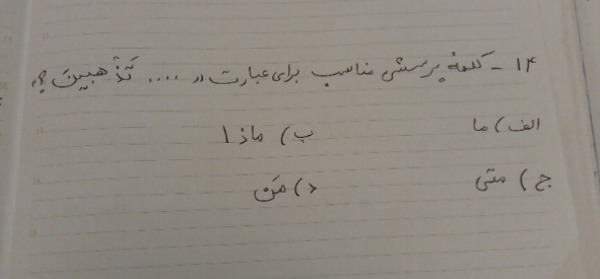 ۱۴- کلمه پرسشی مناسب برای عبارت « .... تَذْهبینَ ؟»
الف) ما ب) ماذا
ج) متی د) مَن